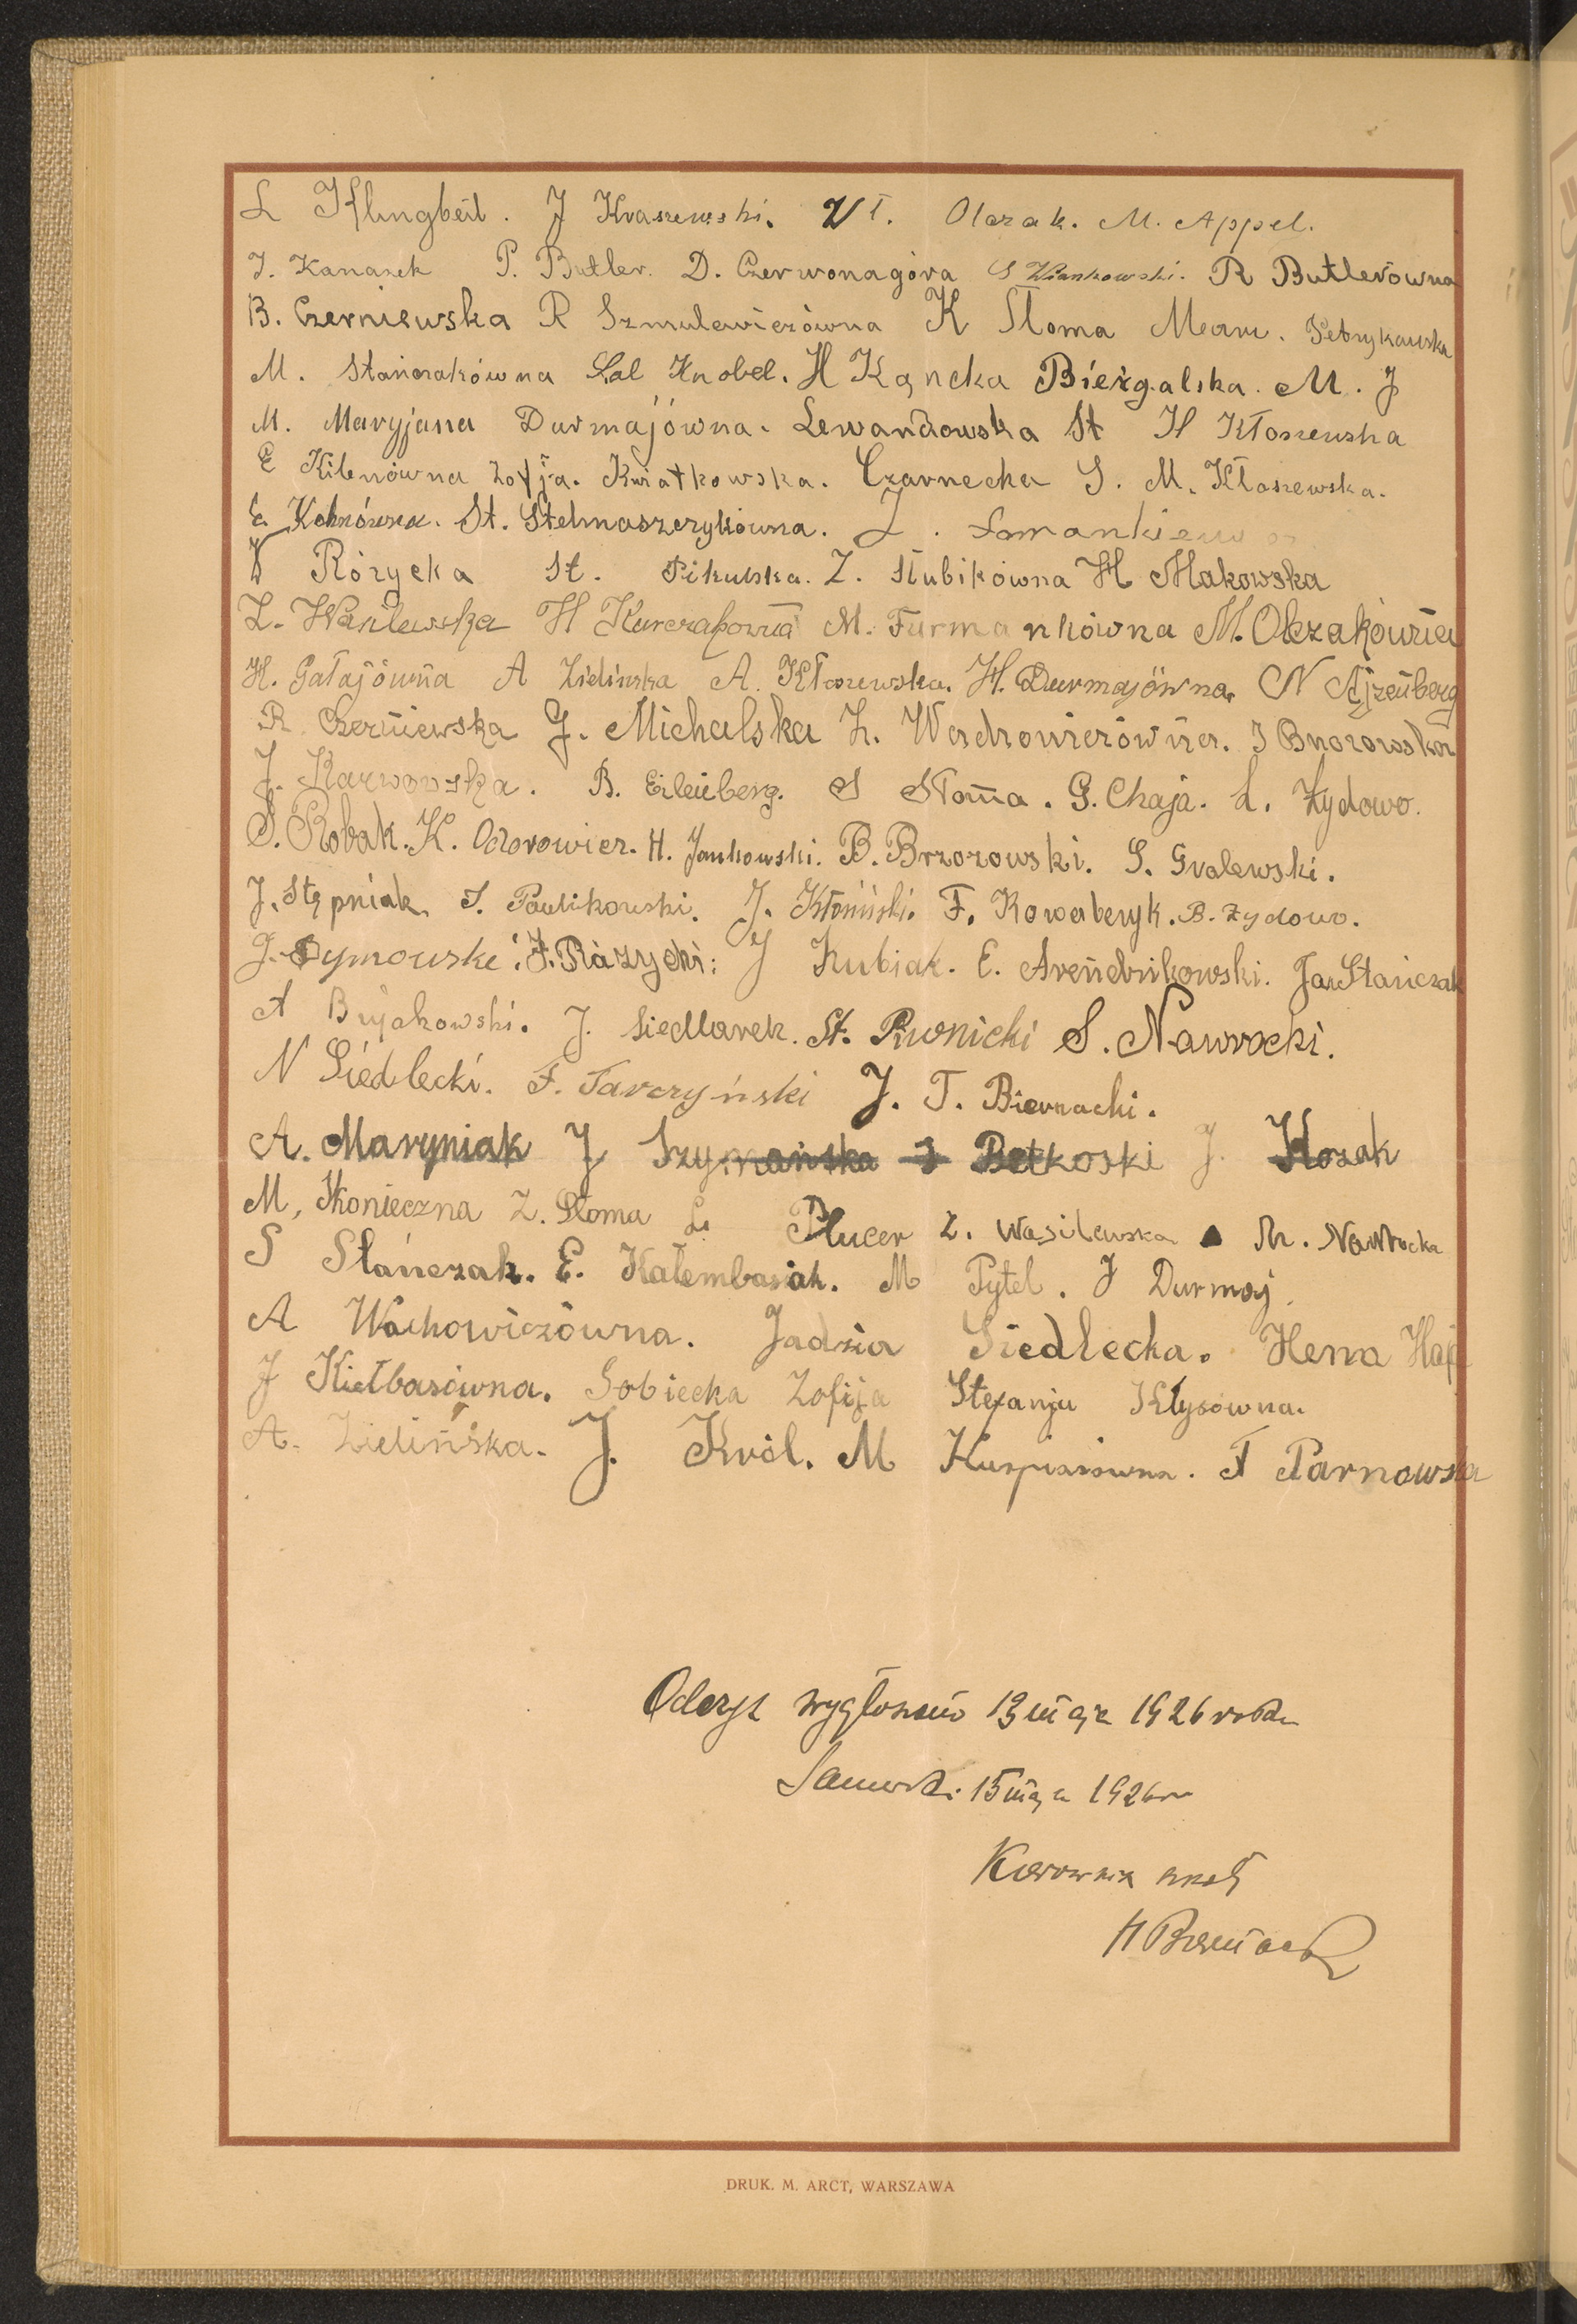 L Klingbeil. J Kraszewski. Wł. Olczak. M. Appel.
J. Kanasek P. Butler. D. Czerwonagóra S Wiankowski. R Butlerówna
B. Czerniewska R Szmulewiczówna K Słoma Mearu. Petrykowska
M. Stańczakówna Lal Knobel. H Kącka Bieżgalska. M. J
M. Maryjana Durmajówna. Lewandowska St H Kłoszewska
E Kilenówna Zofja. Kwiatkowska. Czarnecka S. M. Kłoszewska.
E. Kohnówna. St. Stelmaszczykówna. Z.
W Różycka St. Pikulska. Z. Słubikówna H Makowska
Z. H Kurczakówna M. Furmankówna M. Olczakówna
H. Gałajówna A Zielinska A. Kłoszewska. H. Durmajówna. N Ajzenberg
R. Czerniewska G. Michalska Z. J
J. Karwowska. B. Eilenberg. S Słoma. G. Chaja. L. Zydowo.
S. Robak. K. Odorowicz. H. Jankowski. B. Brzozowski. S. Gralewski.
J. Stępniak. S. Pawlikowski. J. Kłoniński. F. Kowalczyk. B. Zydowo.
J. Dymowski. J. Różycki: J Kubiak. E. Arendzikowski. Jan Stańczak
A Bujakowski. J. Siedlarek. St. Rwnicki S. Nawrocki.
N Siedlecki. F. Tarczyński J. T. Biernacki.
A. Maryniak J Szymańska S Betkoski J. Kozak
M, Konieczna Z. Słoma L. Plucer Z. Wasilewska M. Nawrocka
S Stańczak. E. Kalembasiak. M Pytel. J Durmaj.
A Wachowiczówna. Jadzia Siedlecka. Henna
J Kiełbasówna. Sobiecka Zofija Stefanja Kłysówna.
A. Zielińska. J. Król. M F Parnowska
Odczyt wygłoszono 13 maja 1926 roku
Sanniki 15 maja 1926 r
Kierownik szkoły
DRUK. M. ARCT, WARSZAWA